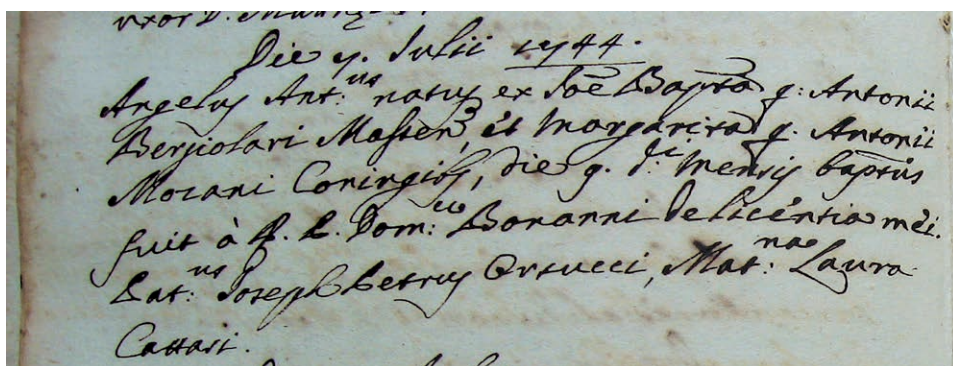 uxor D.
Die 7. Julii 1744.
Angelus Ant:us natus ex Joe Bapta q: Antonii
Bergiolari Massen, et Margarita q. Antonii
Mozani Coniugibs, die 9. di: mensis baptus
fuit à P. R. Dom:co Bonanni de licentia mei.
Pat:us Joseph Petrus Ortucci, Mat:na Laura
Cattari.